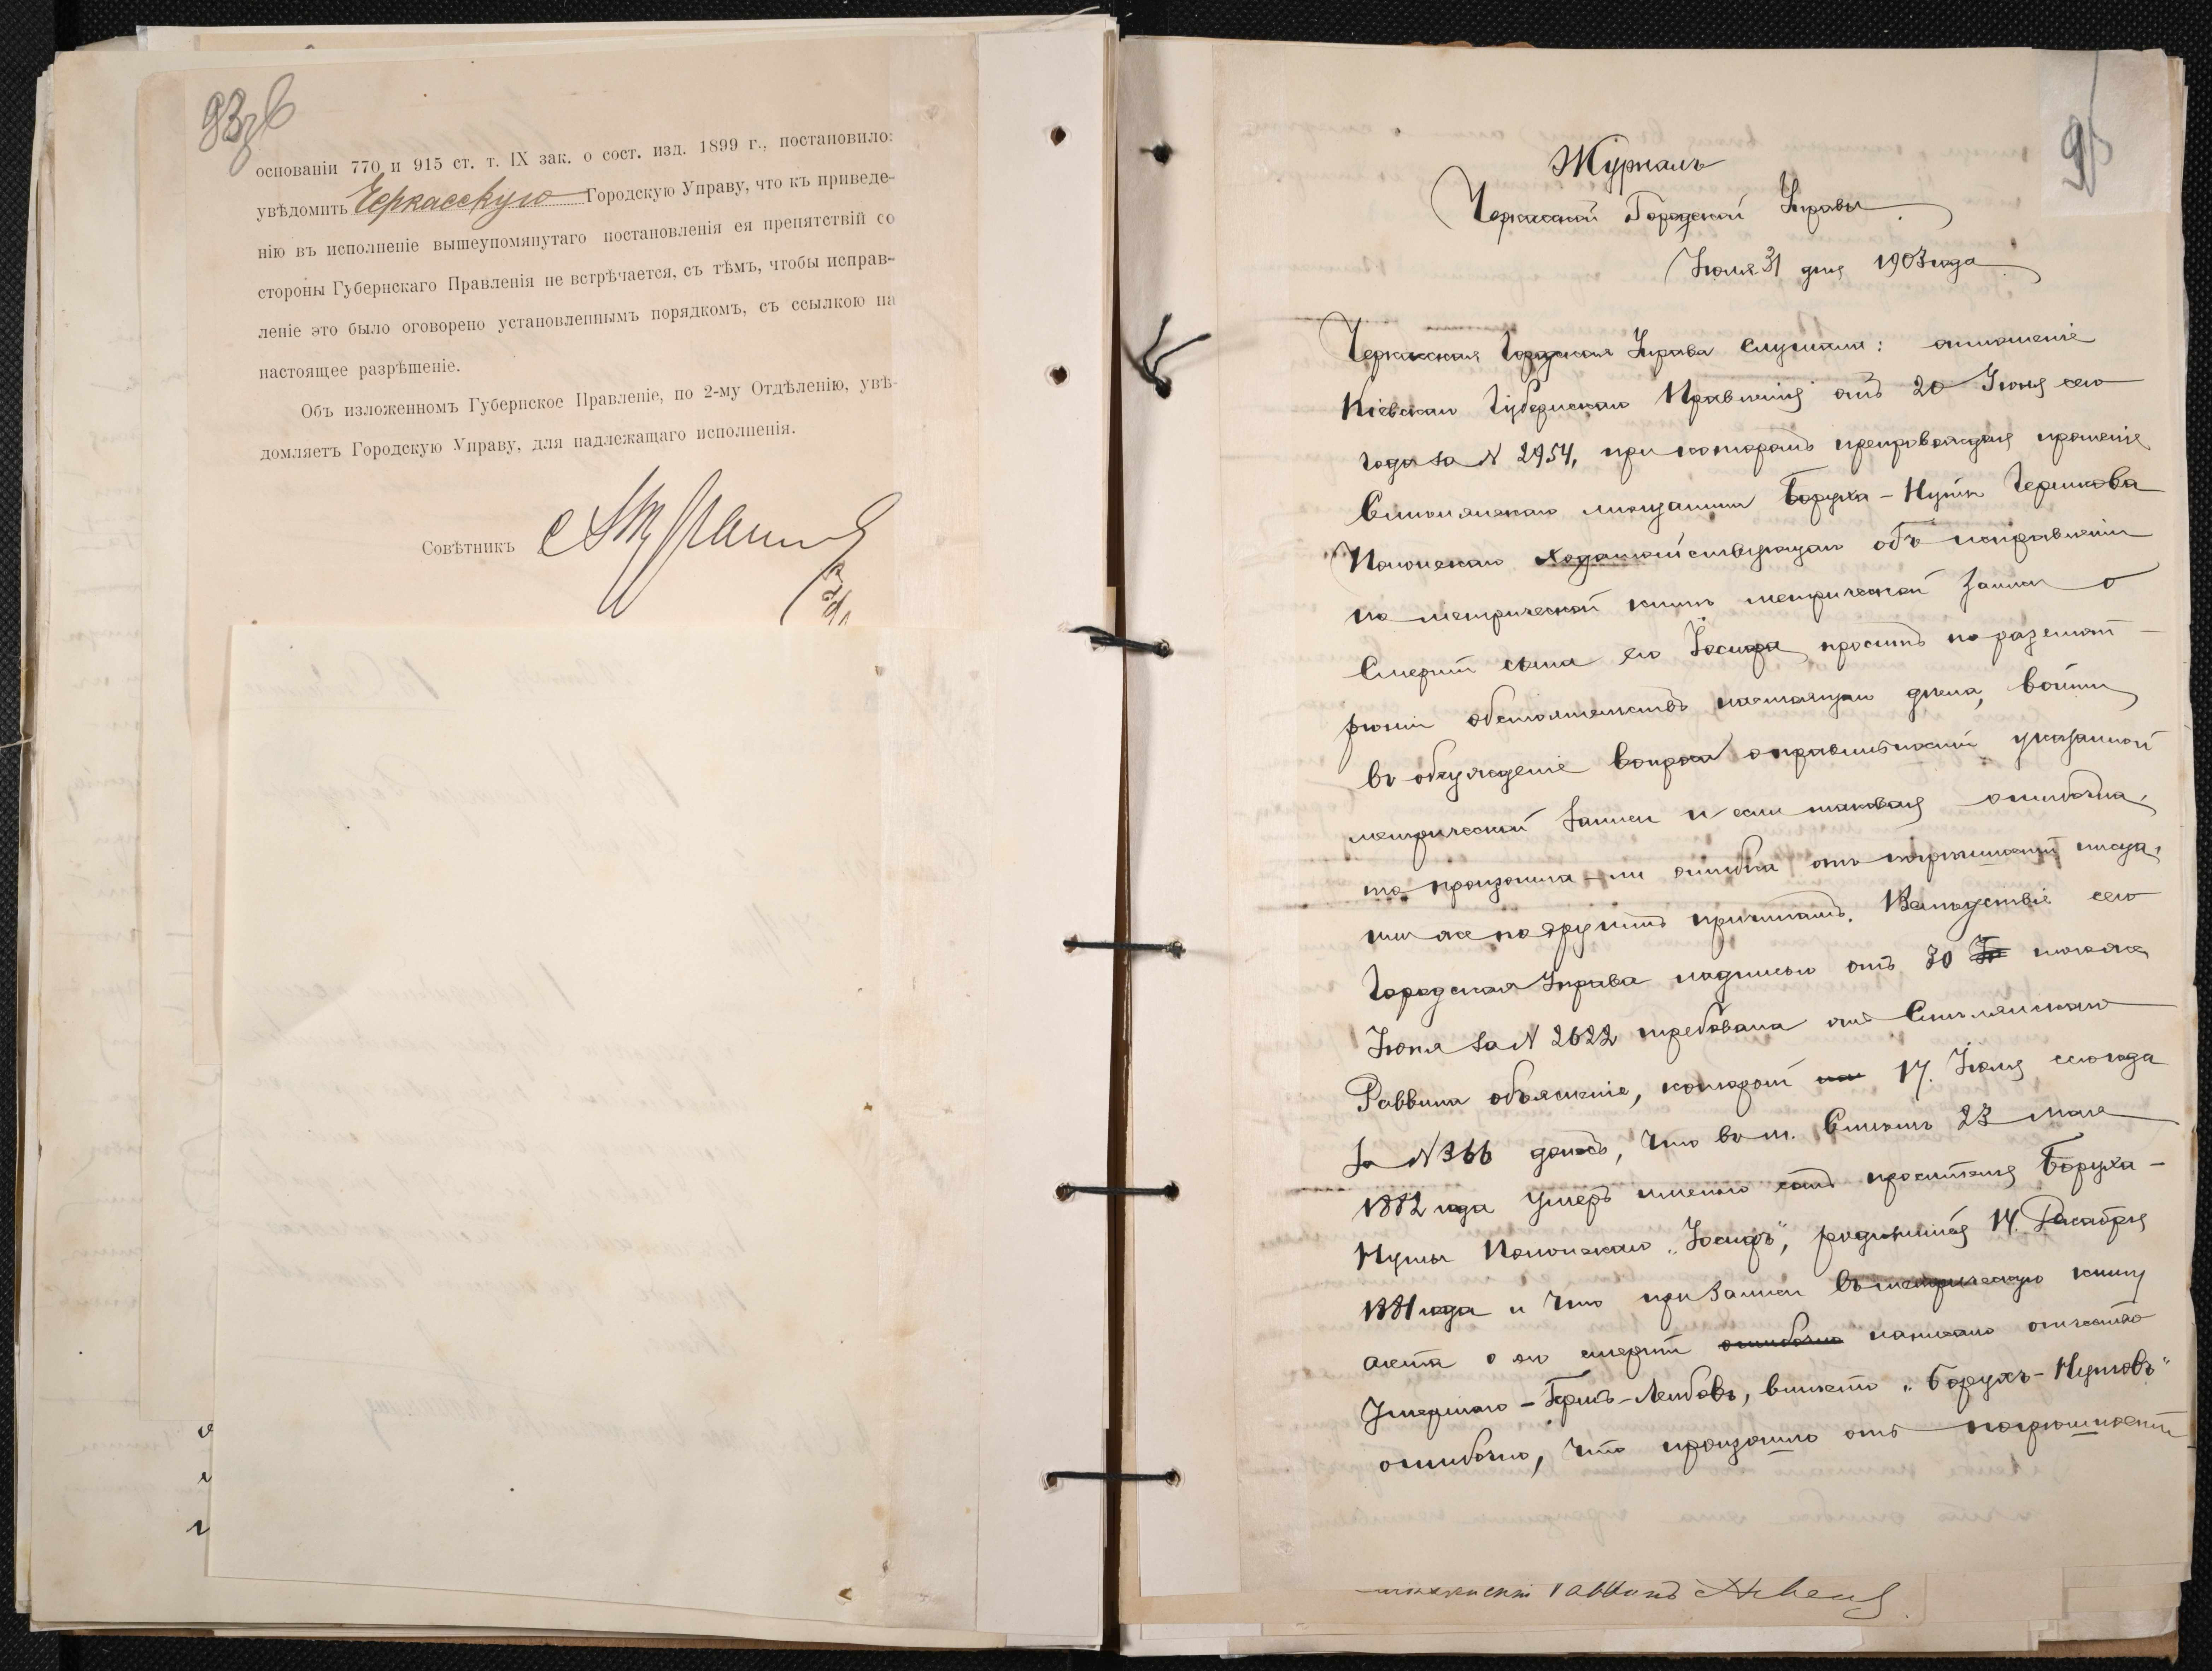 93 об
основаніи 770 и 915 ст. т. IX зак. о сост. изд. 1899 г., постановило:
увѣдомить Черкасскую Городскую Управу, что къ приведе-
нію въ исполненіе вышеупомянутаго постановленія ея препятствій со
стороны Губернскаго Правленія не встрѣчается, съ тѣмъ, чтобы исправ-
леніе это было оговорено установленнымъ порядкомъ, съ ссылкою на
настоящее разрѣшеніе.
Объ изложенномъ Губернское Правленіе, по 2-му Отдѣленію, увѣ-
домляетъ Городскую Управу, для надлежащаго исполненія.
Совѣтникъ
95
Журналъ
Черкасской Городской Управы
Іюля 31 дня 1903 года
Черкасская Городская Управа слушала: отношеніе
Кіевскаго Губернскаго Правленія отъ 20 Іюня сего
года за N 2954, при которомъ препровождая прошеніе
Смѣлянскаго мѣщанина Боруха-Нуты Гершкова
Полонскаго ходатайствующаго объ исправленіи
по метрической книгѣ метрической записи о
смерти сына его Іосифа, проситъ по разсмот-
рѣніи обстоятельствъ настоящаго дѣла, войти
въ обсужденіе вопроса о правильности указанной
метрической записи и если таковая ошибочна,
то произошла-ли ошибка отъ погрѣшности писца,
или же по другимъ причинамъ. Вслѣдствіе сего
Городская Управа надписью отъ 30 того же
Іюня за N 2622 требовала отъ Смѣлянскаго
Раввина объясненіе, который 17 Іюля сего года
за N 366 донесъ, что въ м. Смѣлѣ 23 мая
1882 года умеръ именно сынъ просителя Боруха-
Нуты Полонскаго „Іосифъ", родившійся 14 Декабря
1881 года и что при записи въ метрическую книгу
акта о его смерти ошибочно написано отчество
умершаго - Гершъ-Лейбовъ, вмѣсто „Борухъ-Нутовъ"
ошибочно, что произошло отъ погрѣшности
раввинъ